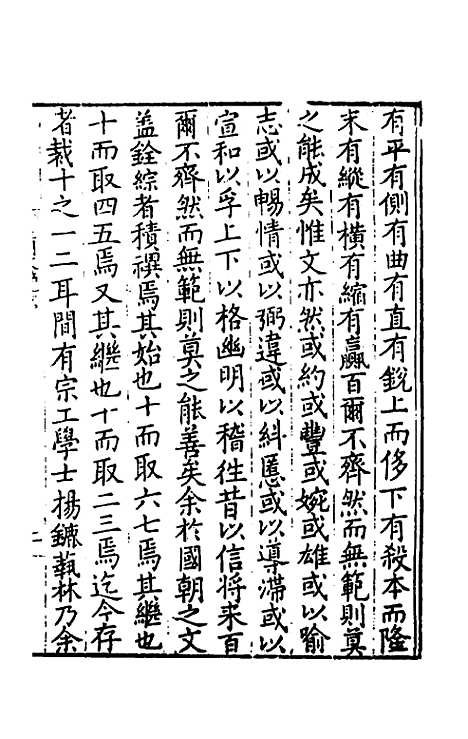 有平有側有曲有直有銳上而侈下有殺本而隆
末有縱有橫有縮有贏百爾不齊然而無範則莫
之能成矣惟文亦然或約或豐或婉或雄或以喻
志或以暢情或以弼違或以糾慝或以導滯或以
宣和以孚上下以格幽明以稽徃昔以信将来百
爾不齊然而無範則莫之能善矣余於國朝之文
盖銓綜者積禩焉其始也十而取六七焉其繼也
十而取四五焉又其繼也十而取二三焉迄今存
者裁十之一二耳間有宗工學士揚鑣蓺林乃余